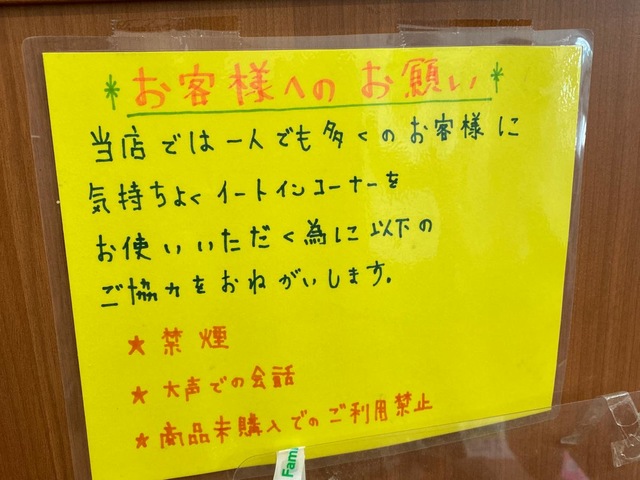 *お客様へのお願い*
当店では一人でも多くのお客様に
気持ちよくイートインコーナーを
お使いいただく為に以下の
ご協力をおねがいします。
★禁煙
★大声での会話
★商品未購入でのご利用禁止
Fam